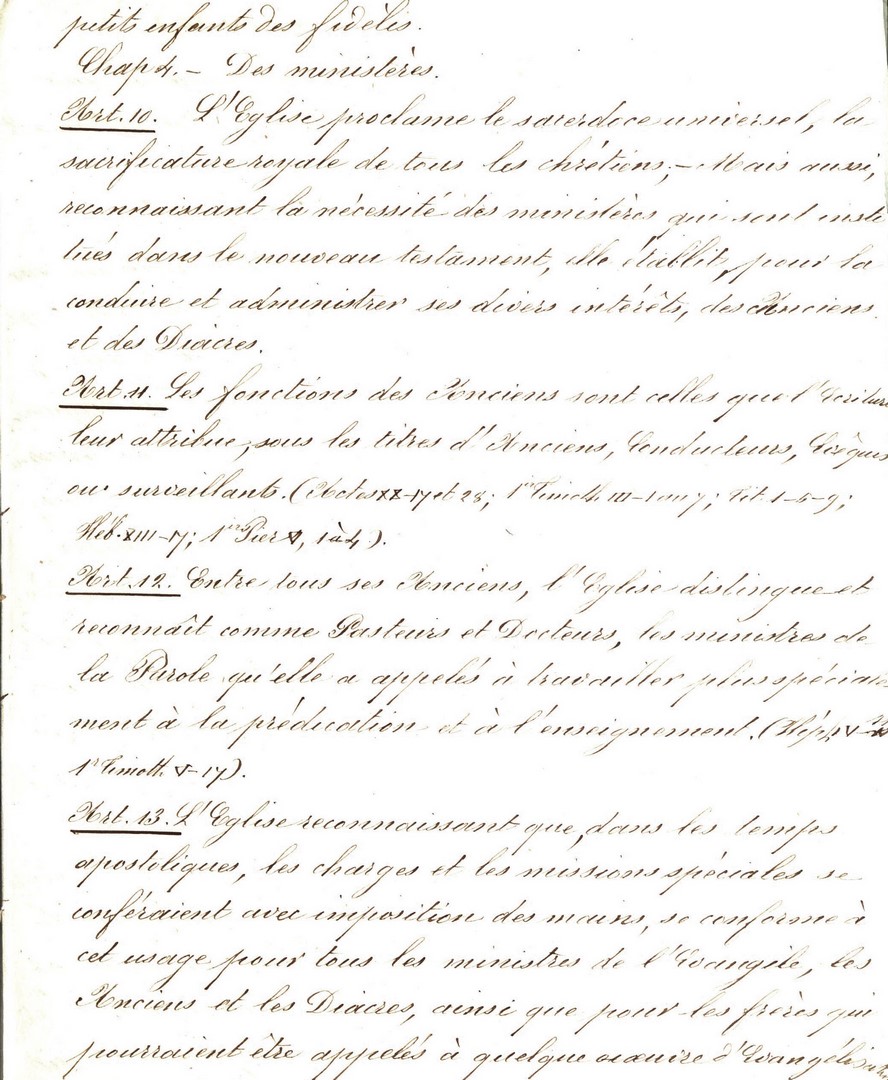 petits enfants des fidèlis.
Chap 4. – Des ministères.
Art. 10. L'Eglise proclame le sacerdoce universel, la
sacrificature royale de tous les chrétiens; – Mais aussi,
reconnaissant la nécessité des ministères qui sont insti
tués dans le nouveau testament, elle établit, pour la
conduire et administrer ses divers intérêts, des Anciens
et des Diacres.
Art. 11. Les fonctions des Anciens sont celles que l'Ecriture
leur attribue, sous les titres d'Anciens, Conducteurs, Evêques
ou surveillants. (Actes XX-17 et 28; 1re Timoth. III-1 au 7; Tit. 1-5-9;
Héb. XIII-17; 1re Pier V, 1 à 4).
Art. 12. Entre tous ses Anciens, l'Eglise distingue et
reconnaît comme Pasteurs et Docteurs, les ministres de
la Parole qu'elle a appelés à travailler plus spéciale
ment à la prédication et à l'enseignement. (
1re Timoth. V-17).
Art. 13. L'Eglise reconnaissant que, dans les temps
apostoliques, les charges et les missions spéciales se
conféraient avec imposition des mains, se conforme à
cet usage pour tous les ministres de l'Evangile, les
Anciens et les Diacres, ainsi que pour les frères qui
pourraient être appelés à quelque œuvre d'Evangélisation